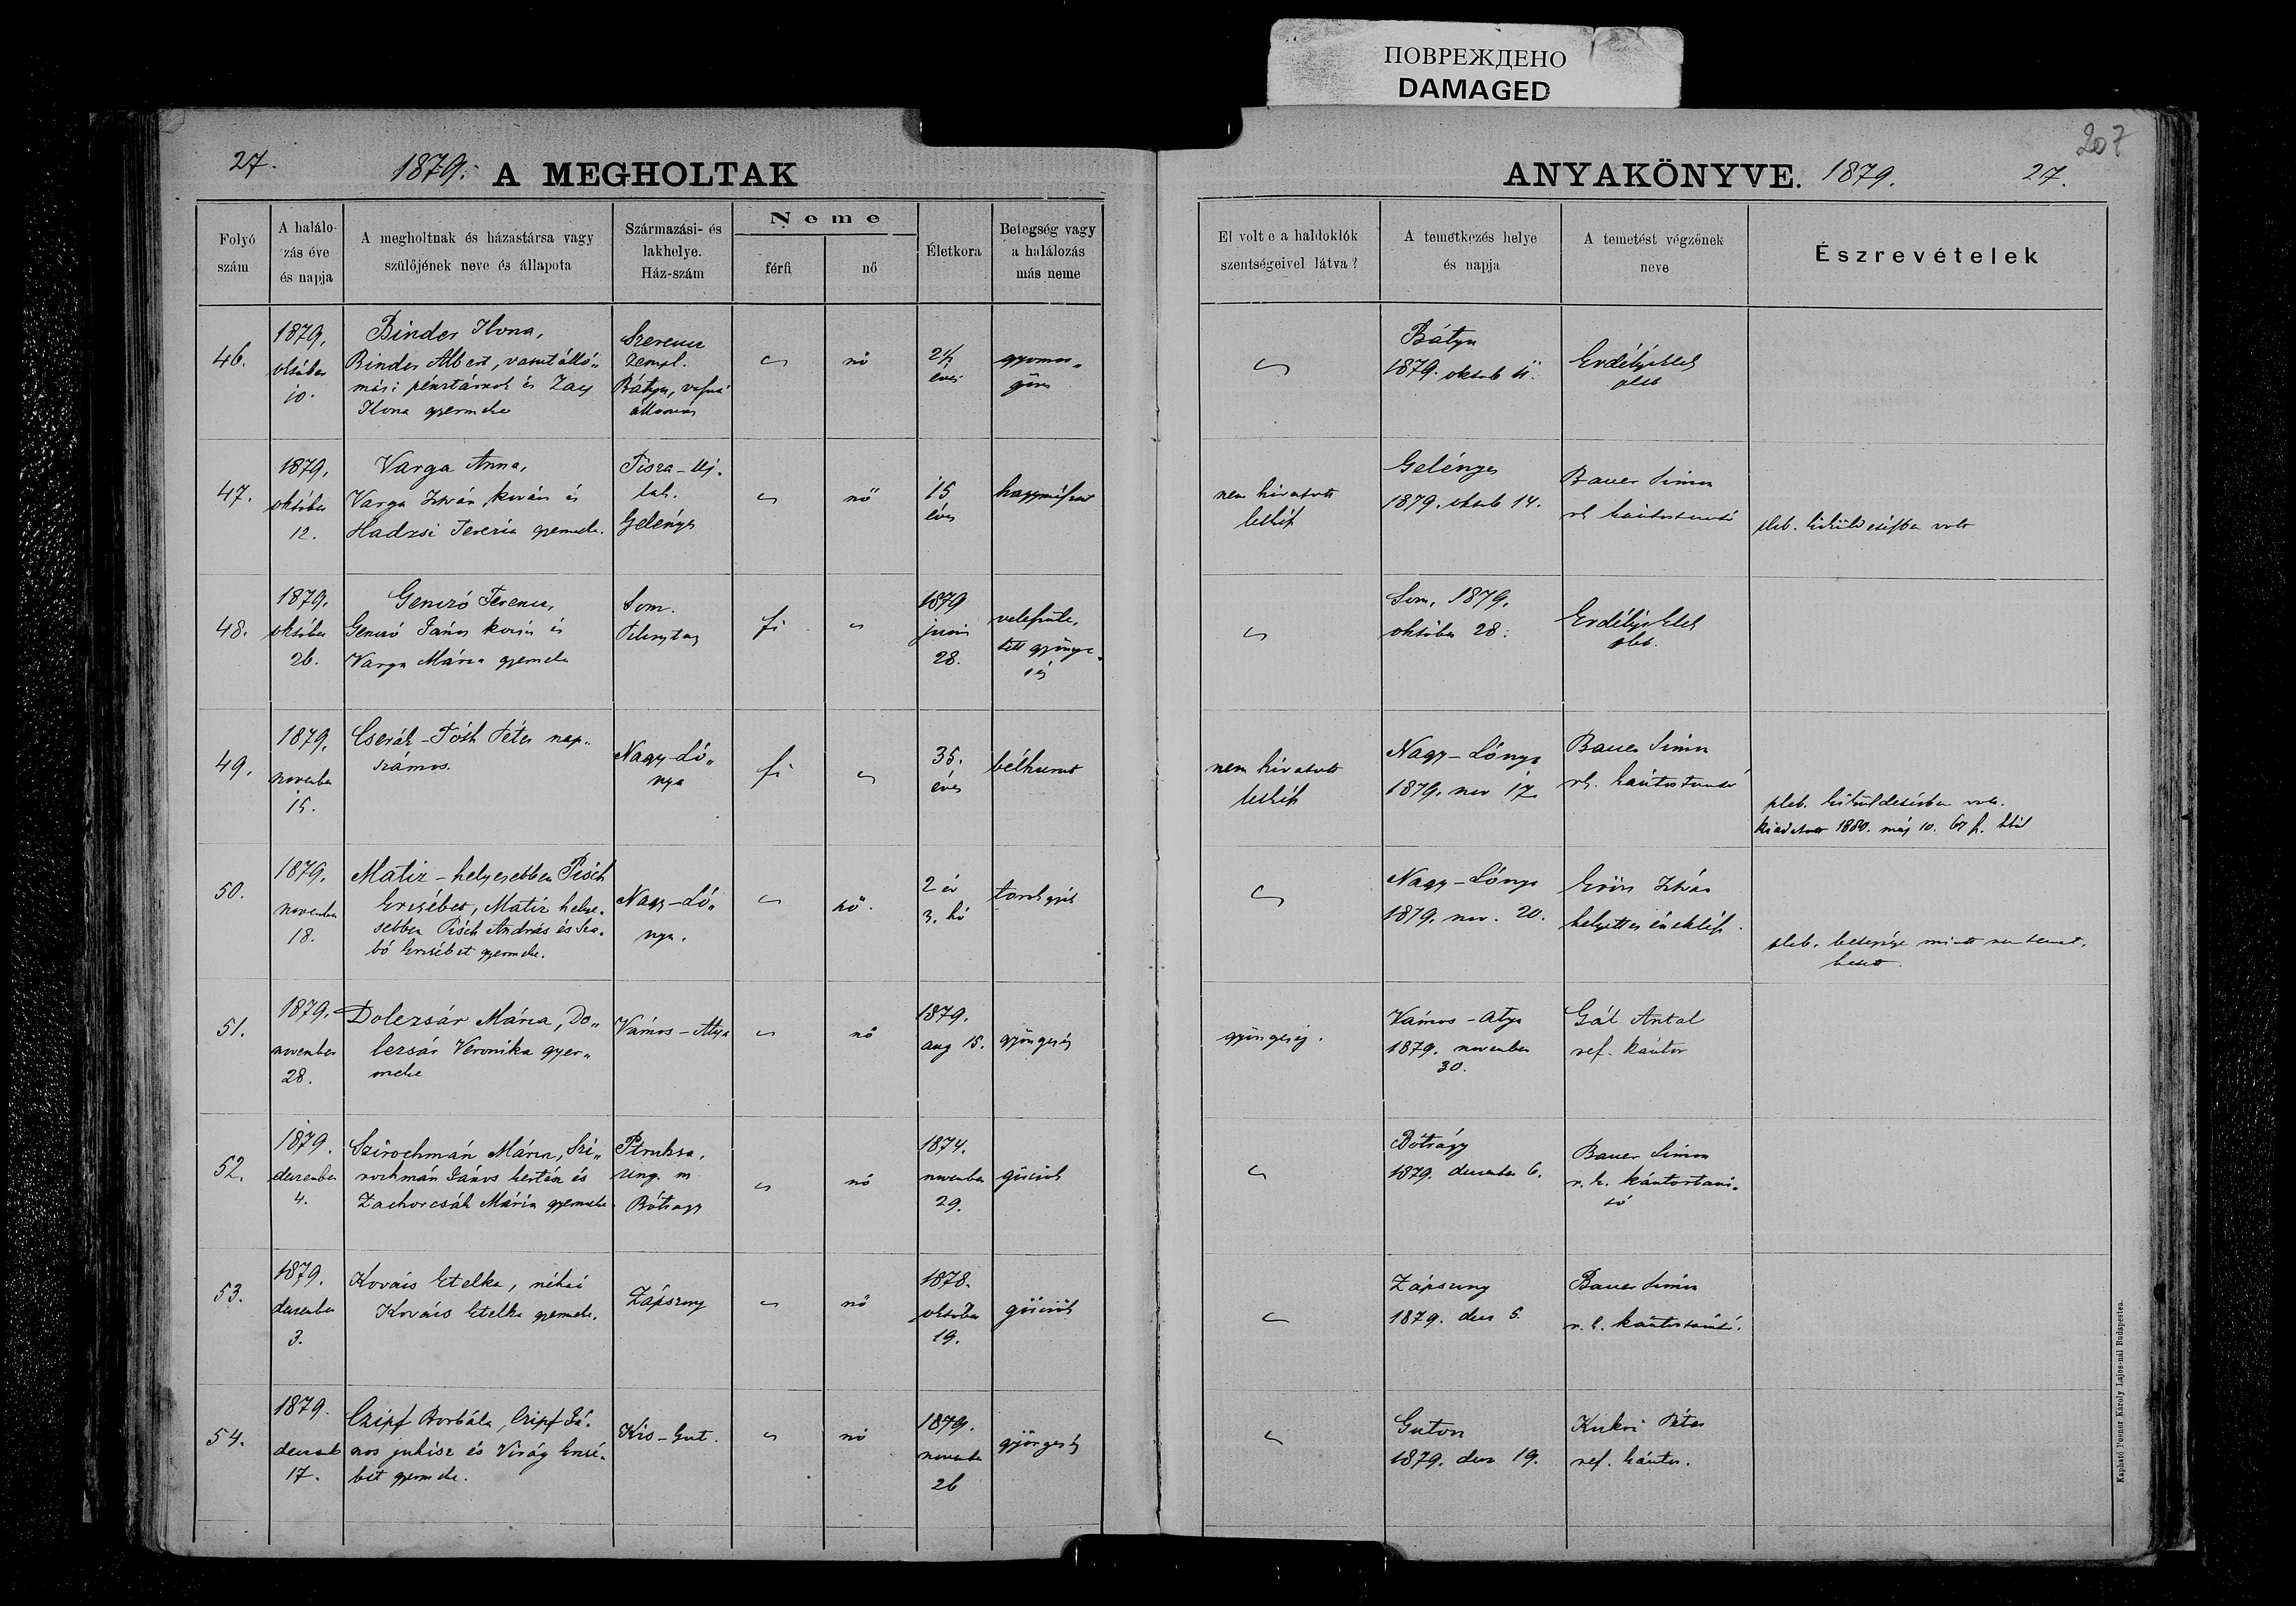 ПОВРЕЖДЕНО
DAMAGED
207
27. 1879. A MEGHOLTAK
ANYAKÖNYVE. 1879. 27.
Folyó szám
A halálo-
zás éve
és napja
A megholtnak és házastársa vagy
szülőjének neve és állapota
Származási- és
lakhelye.
Ház-szám
Neme
férfi
nő
Életkora
Betegség vagy
a halálozás
más neme
El volt e a haldoklók
szentségeivel látva?
A temetkezés helye
és napja
A temetést végzőnek
neve
Észrevételek
46.
1879.
október
10.
Binder Ilona,
Binder Albert, vasutálló„
mási pénztárnok és Zay
Ilona gyermeke
Szerencs
Zempl.
Bátyu,
állomás
nő
2½
éves
gyomor„
görcs
Bátyu
1879. oktob 11.
Erdélyi Elek
pleb
47.
1879.
október
12.
Varga Anna,
Varga István kovács és
Hadzsi Terézia gyermeke.
Tisza-Uj.
lak.
Gelényes
nő
15
éves
nem hivatott
lelkész
Gelényes
1879. oktob 14.
Bauer Simon
rk kántortanitó
pleb. volt
48.
1879.
október
26.
Genczó Ferencz,
Genczó János kocsis és
Varga Mária gyermeke
Som.
fi
1879
juni
28.
veleszüle„
tett gyönge„
ség
Som, 1879.
október 28.
Erdélyi Elek
pleb.
49.
1879.
november
15.
Cserák-Tóth Péter nap„
számos.
Nagy-Ló„
nya
fi
35.
éves
bélhurut
nem hivatott
lelkész
Nagy-Lónya
1879. nov 17.
Bauer Simon
rk. kántortanitó
pleb. volt.
kiadatott 1880. máj 10. 67 sz.
50.
1879.
november
18.
Matiz - helyesebben Pisch
Erzsébet, Matiz helye„
sebben Pisch András és Sza„
bó Erzsébet gyermeke.
Nagy-Ló„
nya.
nő.
2 év
3. hó
torokgyík
Nagy-Lónya
1879. nov. 20.
István
helyettes énekész.
pleb. betegsége miatt nem temet„
hetett.
51.
1879.
november
28.
Dolezsár Mária, Do„
lezsár Veronika gyer„
meke
Vámos-Atya
nő
1879.
aug 15.
gyöngeség
gyöngeség.
Vámos-Atya
1879. november
30.
Gál Antal
ref. kántor
52.
1879.
deczember
4.
Szirochmán Mária, Szi„
rochmán János kertész és
Zachorcsák Mária gyermeke.
Ptruksa,
Ung. m
Bótragy
nő
1874.
november
29.
görcsök
Bótrágy
1879. deczember 6.
Bauer Simon
r. k. kántortani„
tó
53.
1879.
deczember
3.
Kovács Etelka, néhai
Kovács Etelka gyermeke.
Zápszony
nő
1878.
október
19.
görcsök
Zápszony
1879. decz 5.
Bauer Simon
r. k. kántortanitó.
54.
1879.
deczemb
17.
Czipf Borbála, Czipf Já„
nos juhász és Virág Erzsé„
bet gyermeke.
Kis-Gut.
nő
1879.
november
26
gyöngeség
Guton
1879. decz 19.
Kukri Péter
ref. kántor.
Kapható Posner Károly Lajos-nál Budapesten.